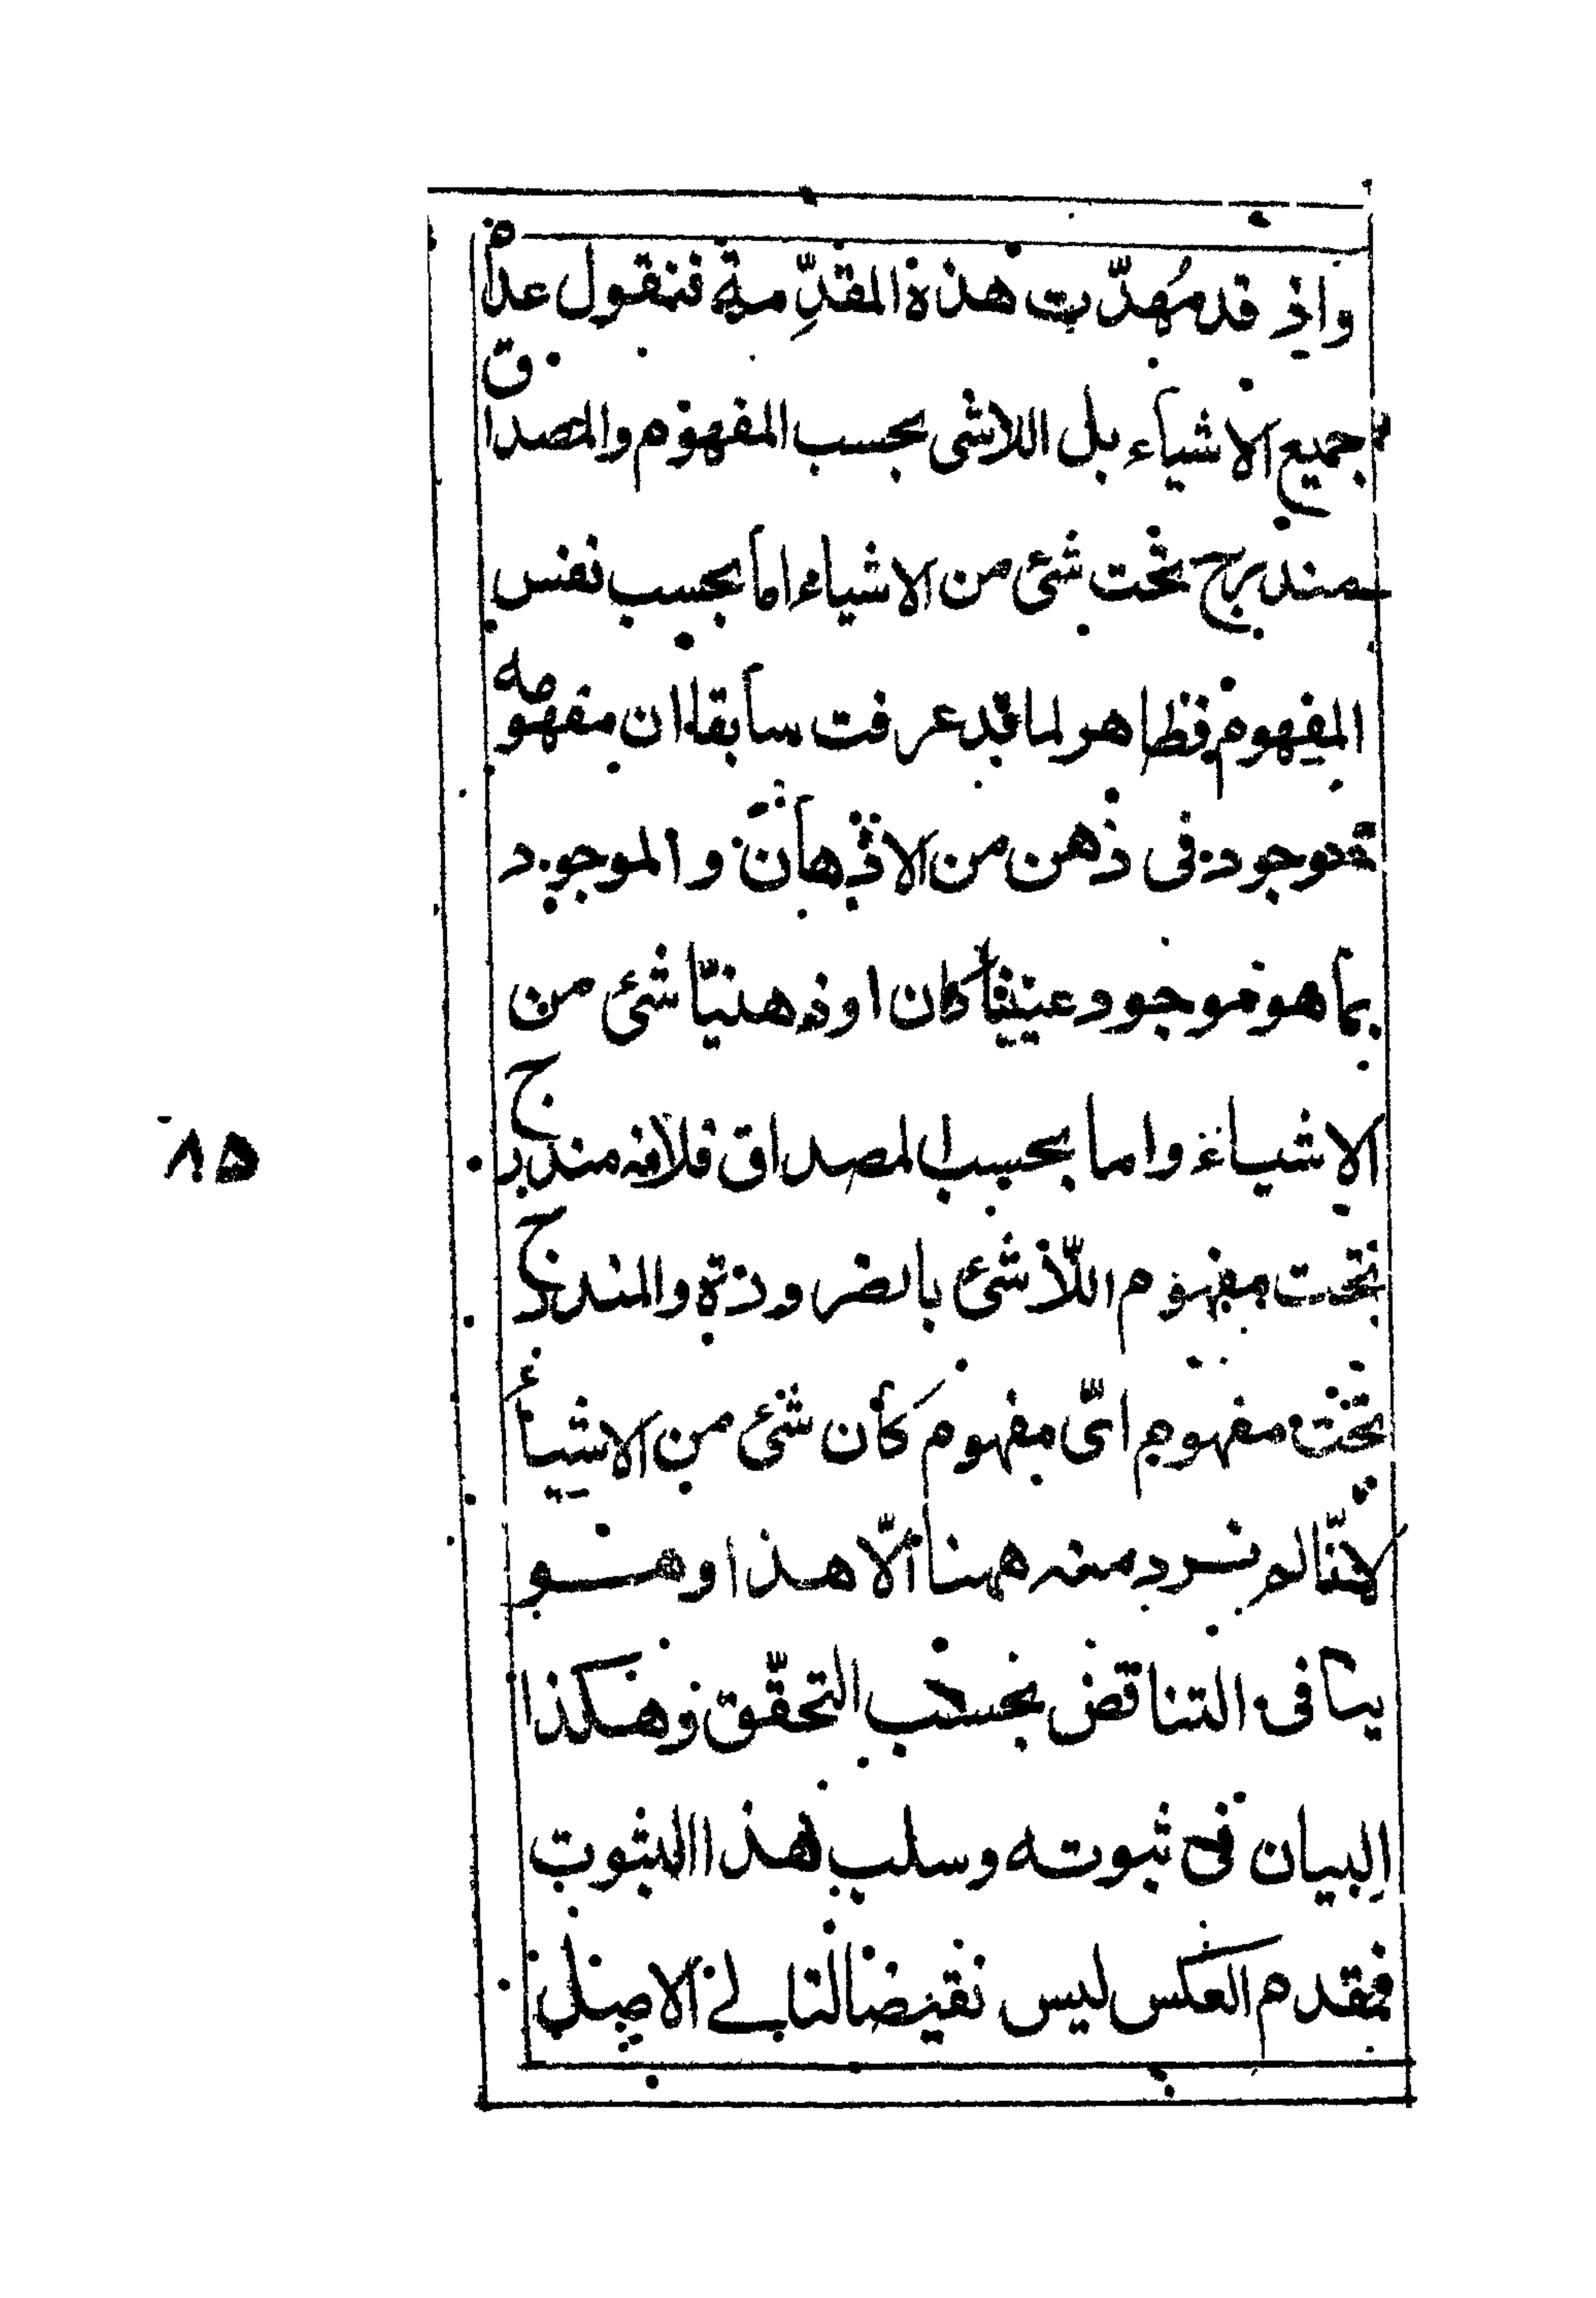 واذ قد مُهدّت هذة المقدِّمة فنقول عدم
جميع الاشياء بل اللاشى بحسب المفهوم والمصداق
مندرج تحت شئ من الاشياء اما بحسب نفس
المفهوم فظاهر لما قد عرفت سابقا ان مفهومه
موجود فى ذهن من الاذهان والموجود
بما هو موجود عينيا كان او ذهنيّا شئ من
الاشياء واما بحسب المصداق فلانه مندرج
تحت مفهوم اللّاشئ بالضرورة والمندرج
تحت مفهوم اىّ مفهوم كان شئ من الاشياء
لانّا لم نرد منه ههنا الّا هذا وهو
ينافى التناقض بحسب التحقّق وهكذا
البيان فى ثبوته وسلب هذا الثبوت
فمقدم العكس ليس نقيضا لتالے الاصل
٨۵